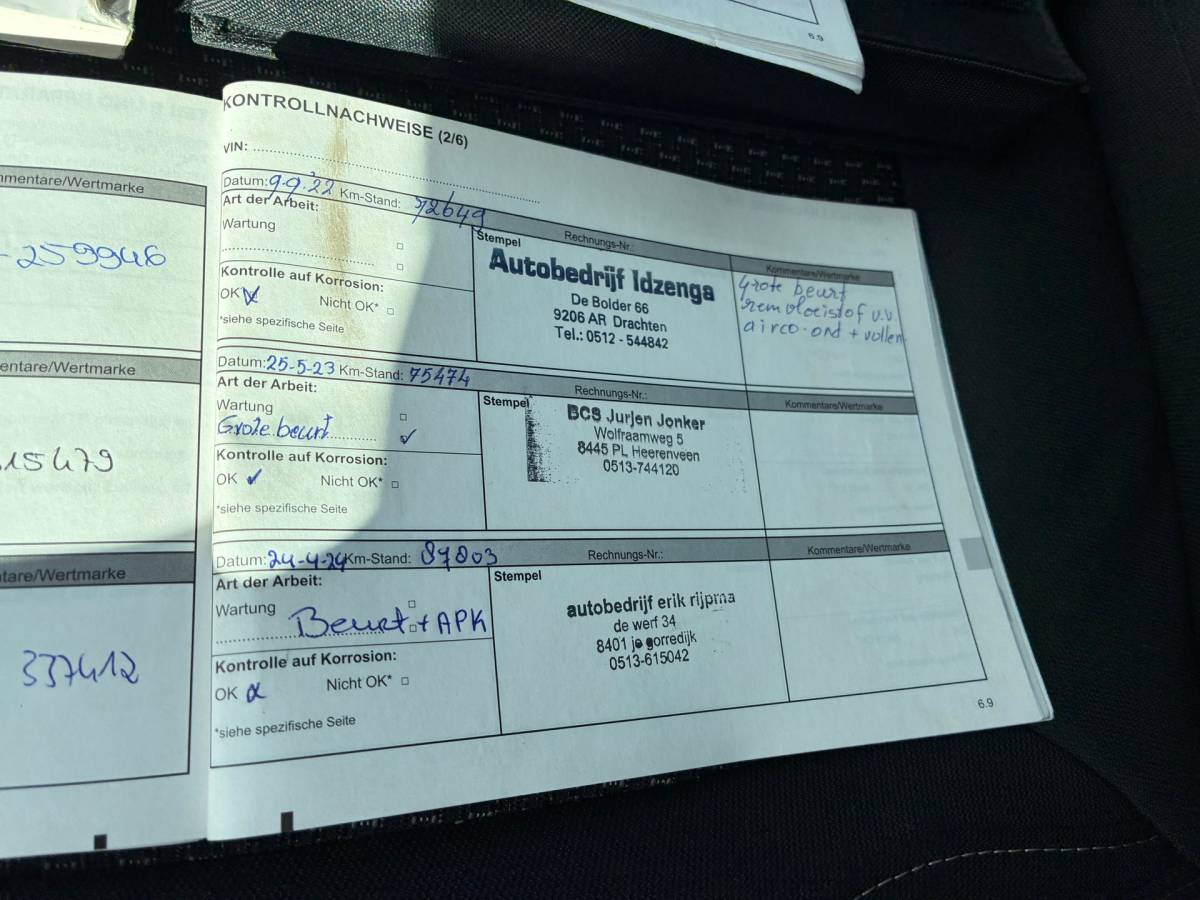 6.9
mmentare/Wertmarke
-259946
entare/Wertmarke
15479
ntare/Wertmarke
337412
KONTROLLNACHWEISE (2/6)
VIN:
Datum: 9.9.'22 Km-Stand: 72649
Art der Arbeit:
Wartung
Kontrolle auf Korrosion:
OK Nicht OK*
*siehe spezifische Seite
Stempel Rechnungs-Nr.:
Autobedrijf Idzenga
De Bolder 66
9206 AR Drachten
Tel.: 0512 - 544842
Kommentare/Wertmarke
Grote beurt
remvloeistof v.v.
airco-ond + vullen
Datum: 25-5-23 Km-Stand: 75474
Art der Arbeit:
Wartung
Grote beurt ✓
Kontrolle auf Korrosion:
OK ✓ Nicht OK*
*siehe spezifische Seite
Stempel Rechnungs-Nr.:
BCS Jurjen Jonker
Wolfraamweg 5
8445 PL Heerenveen
0513-744120
Kommentare/Wertmarke
Datum: 24-4-24 Km-Stand: 87803
Art der Arbeit:
Wartung
Beurt + APK
Kontrolle auf Korrosion:
OK Nicht OK*
*siehe spezifische Seite
Stempel Rechnungs-Nr.:
autobedrijf erik rijpma
de werf 34
8401 je gorredijk
0513-615042
Kommentare/Wertmarke
6.9